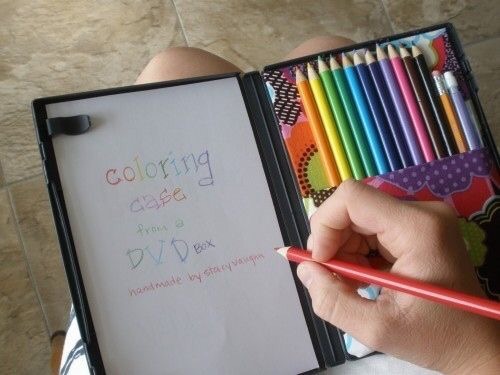 coloring
case
from a
DVD Box
handmade by stacy vaughn